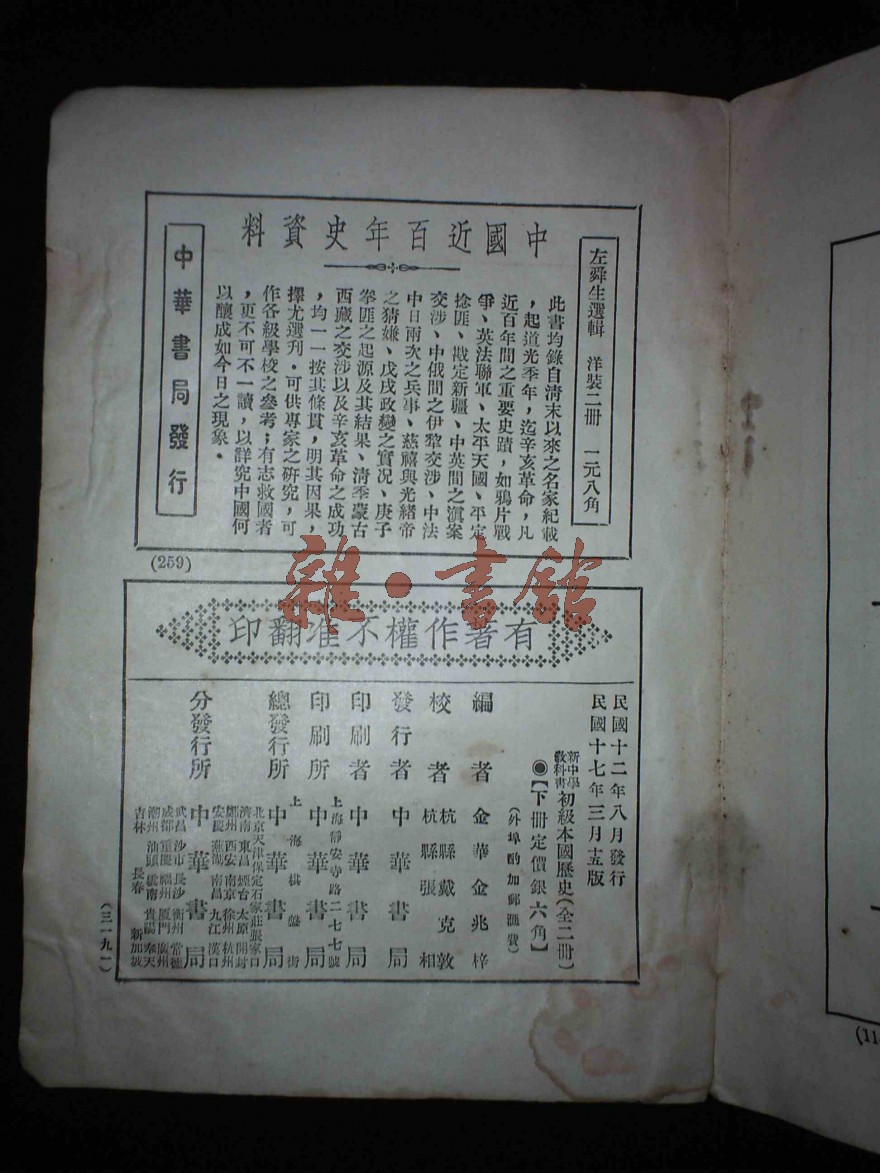 中國近百年史資料
左舜生選輯 洋裝二冊 一元八角
此書均錄自淸末以來之名家紀載
，起道光季年，迄辛亥革命，凡
近百年間之重要史蹟，如鴉片戰
爭、英法聯軍、太平天國、平定
捻匪、戡定新疆、中英間之滇案
交涉、中俄間之伊犂交涉、中法
中日兩次之兵事、慈禧與光緒帝
之猜嫌、戊戌政變之實况、庚子
拳匪之起源及其結果、淸季蒙古
西藏之交涉以及辛亥革命之成功
，均一一按其條貫，明其因果，
擇尤選刊。可供專家之硏究，可
作各級學校之參考；有志救國者
，更不可不一讀，以詳究中國何
以釀成如今日之現象。
中華書局發行
(259)
雜·書館
有著作權不准翻印
民國十二年八月發行
民國十七年三月十五版
新中學教科書 初級本國歷史（全二冊）
◉【下冊定價銀六角】
（外埠酌加郵匯費）
編者 金華金兆梓
校者 杭縣戴克敦
杭縣張相
發行者 中華書局
印刷者 中華書局
上海靜安寺路二七七號
印刷所 中華書局
上海棋盤街
總發行所 中華書局
北京天津保定石家莊張家口
濟南東昌煙台太原開封
鄭州西安南京徐州杭州
安慶蕪湖南昌九江漢口
分發行所 中華書局
武昌沙市長沙衡州常德
成都重慶福州厦門廣州
潮州汕頭雲南貴陽奉天
吉林長春新加坡
(三一九一)
(11